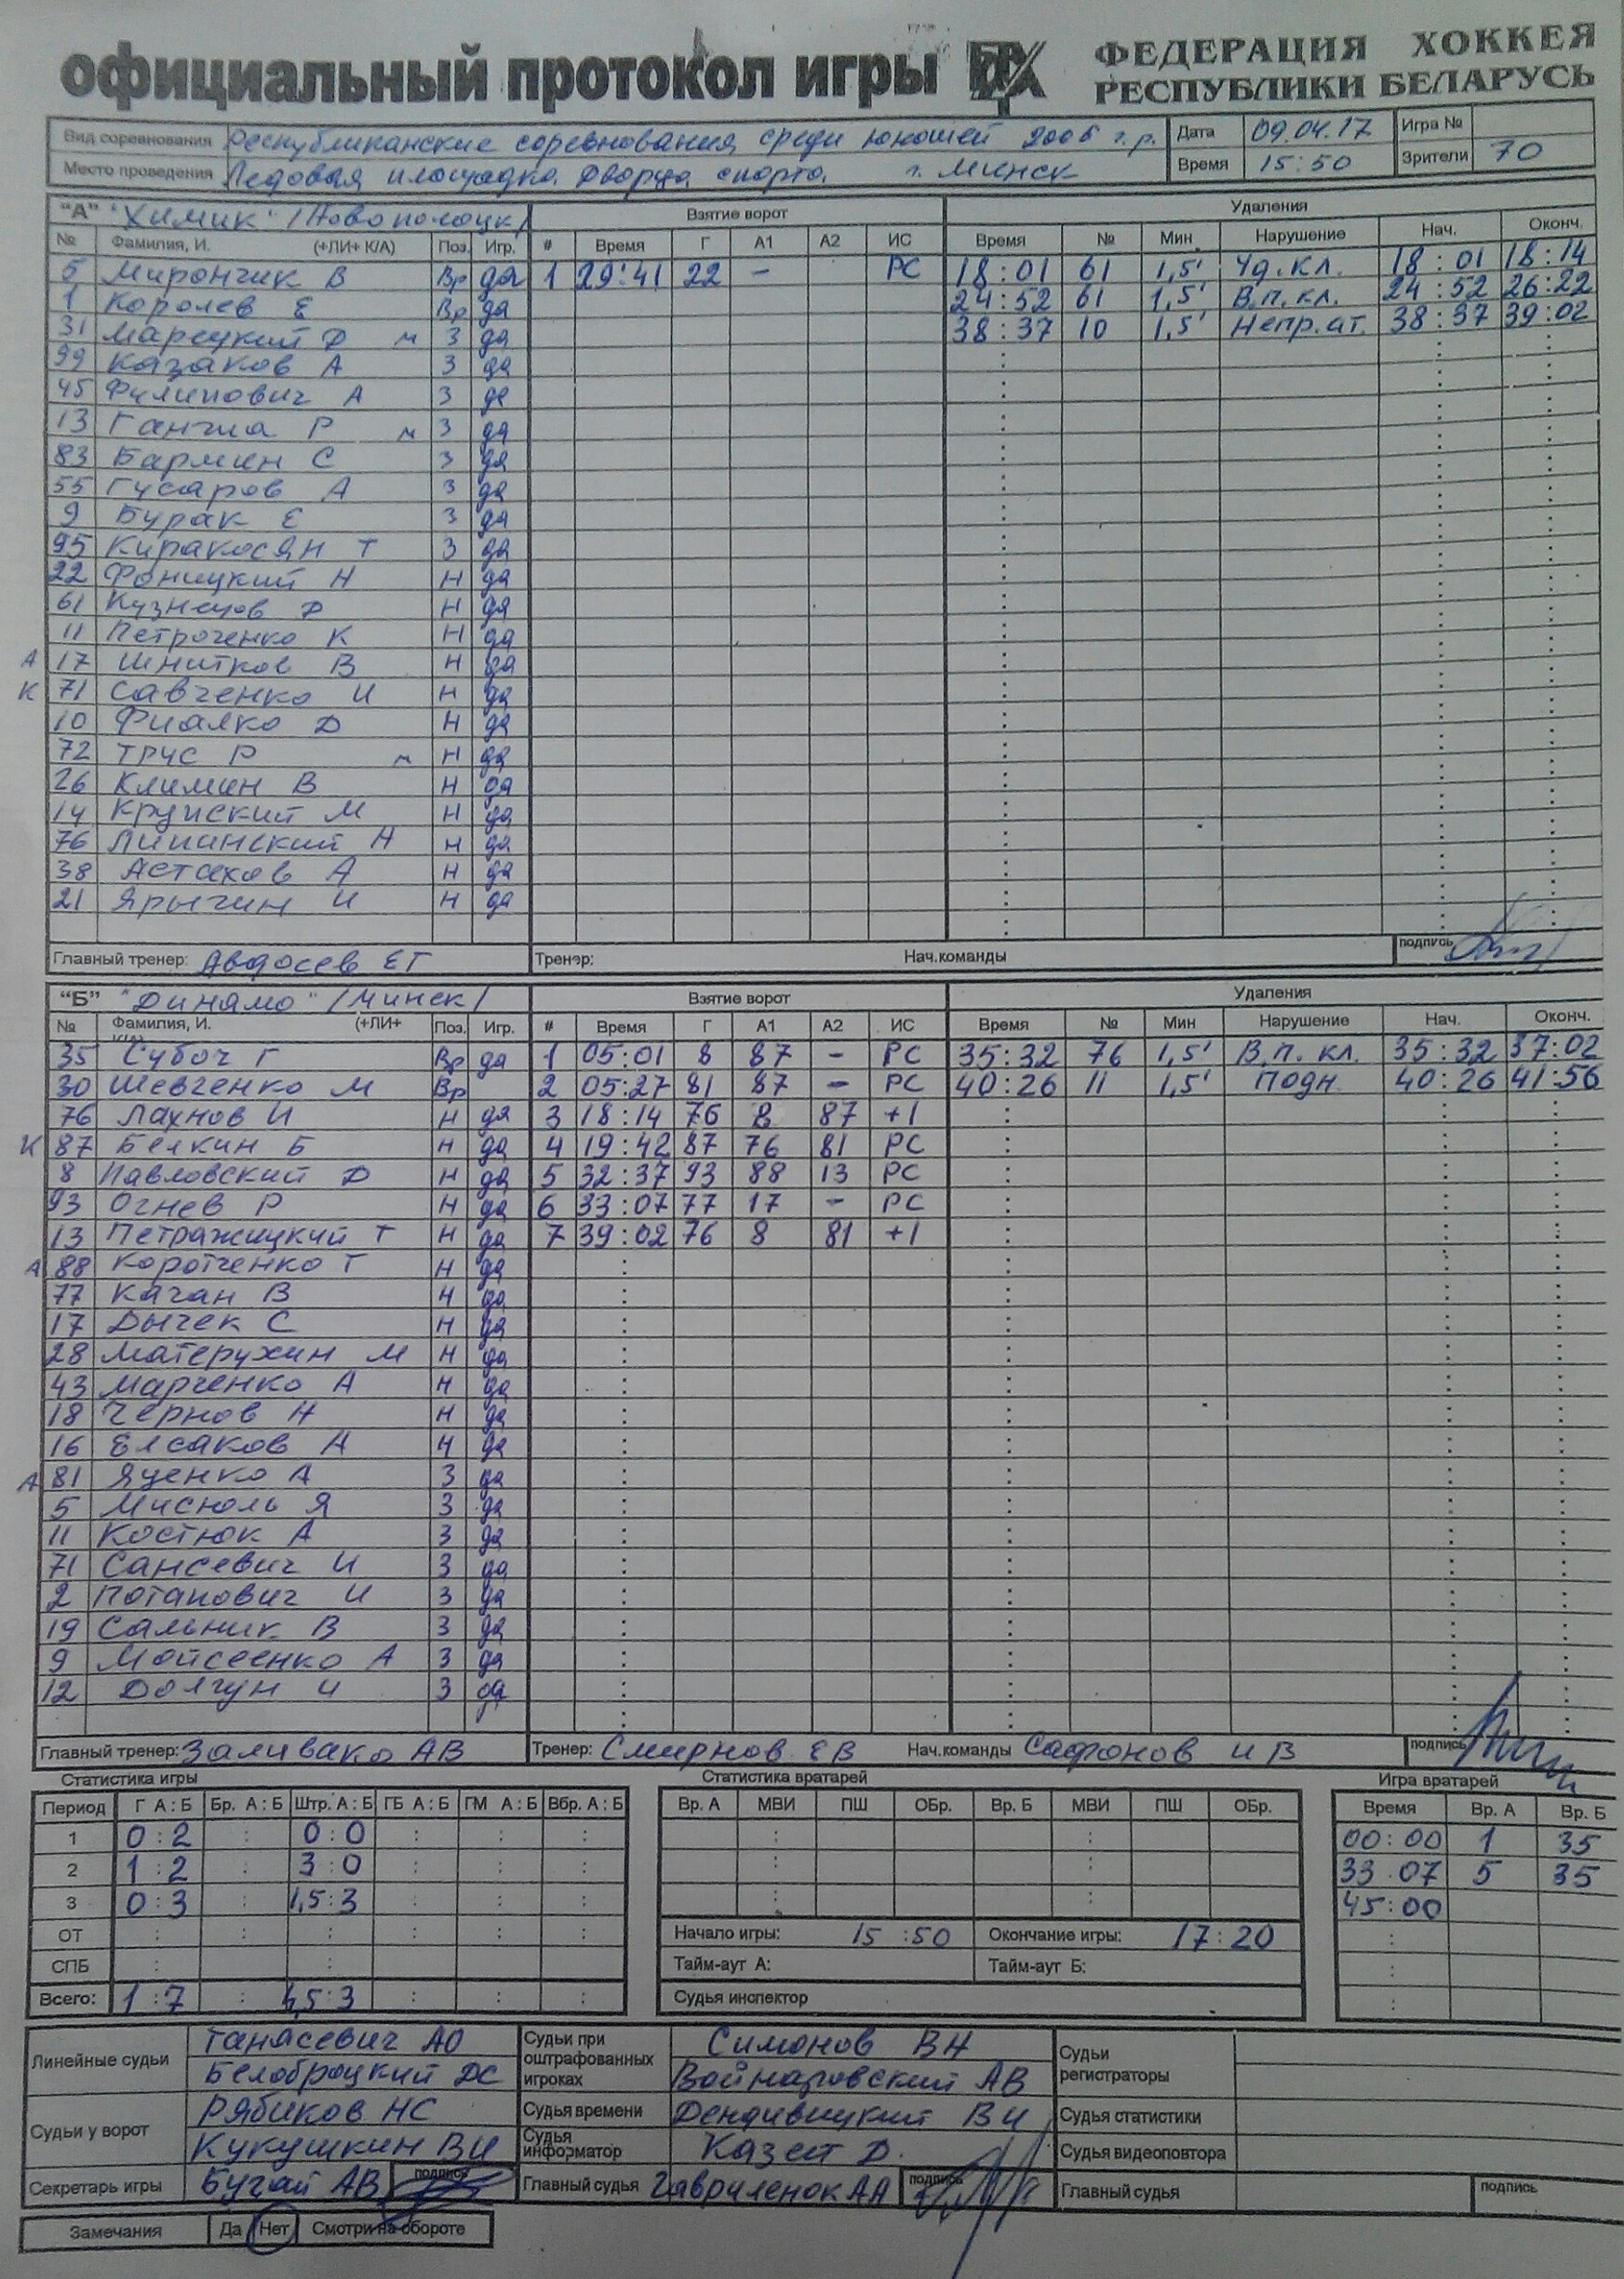 официальный протокол игры ФЕДЕРАЦИЯ ХОККЕЯ
РЕСПУБЛИКИ БЕЛАРУСЬ
Вид соревнования Республиканские соревнования среди юношей 2005 г.р. Дата 09.04.17 Игра №
Место проведения Ледовая площадка Дворца спорта г. Минск Время 15:50 Зрители 70
"А" "Химик" /Новополоцк/ Взятие ворот Удаления
№ Фамилия, И. (+ЛИ+ К/А) Поз. Игр. # Время Г А1 А2 ИС Время № Мин Нарушение Нач. Оконч.
5 Мирончик В Вр да 1 29:41 22 - РС 18:01 61 1,5' Уд.кл. 18:01 18:14
1 Королев Е Вр да 24:52 61 1,5' В.п.кл. 24:52 26:22
31 Марецкий Д м З да 38:37 10 1,5' Непр.ат. 38:37 39:02
99 Казаков А З да
45 Филипович А З да
13 Ганжа Р м З да
83 Бармин С З да
55 Гусаров А З да
9 Бурак Е З да
95 Киракосян Т З да
22 Фоницкий Н Н да
61 Кузнецов Д Н да
11 Петроченко К Н да
А 17 Шнитков В Н да
К 71 Савченко И Н да
10 Фиалко Д Н да
72 Трус Р м Н да
26 Климин В Н да
14 Крупский М Н да
76 Липинский Н Н да
38 Астахов А Н да
21 Ярыгин И Н да
Главный тренер: Авдосев ЕГ Тренер: Нач.команды подпись
"Б" "Динамо" /Минск/ Взятие ворот Удаления
№ Фамилия, И. (+ЛИ+ Поз. Игр. # Время Г А1 А2 ИС Время № Мин Нарушение Нач. Оконч.
35 Субоч Г Вр да 1 05:01 8 87 - РС 35:32 76 1,5' В.п. кл. 35:32 37:02
30 Шевченко М Вр 2 05:27 81 87 - РС 40:26 11 1,5' Подн. 40:26 41:56
76 Лахнов И Н да 3 18:14 76 8 87 +1
К 87 Белкин Б Н да 4 19:42 87 76 81 РС
8 Павловский Д Н да 5 32:37 93 88 13 РС
93 Огнев Р Н да 6 33:07 77 17 - РС
13 Петражицкий Т Н да 7 39:02 76 8 81 +1
А 88 Коротченко Т Н да
77 Качан В Н да
17 Дычек С Н да
28 Матерухин М Н да
43 Марченко А Н да
18 Чернов Н Н да
16 Елсаков А Н да
А 81 Яценко А З да
5 Мисюль Я З да
11 Костюк А З да
71 Сансевич И З да
2 Потапович И З да
19 Сальник В З да
9 Мойсеенко А З да
12 Долгун И З да
Главный тренер: Заливако АВ Тренер: Смирнов ЕВ Нач.команды Сафонов И В подпись
Статистика игры Статистика вратарей Игра вратарей
Период Г А : Б Бр. А : Б Штр. А : Б ГБ А : Б ГМ А : Б Вбр. А : Б Вр. А МВИ ПШ ОБр. Вр. Б МВИ ПШ ОБр. Время Вр. А Вр. Б
1 0:2 0:0 00:00 1 35
2 1:2 3:0 33:07 5 35
3 0:3 1,5:3 45:00
ОТ Начало игры: 15:50 Окончание игры: 17:20
СПБ Тайм-аут А: Тайм-аут Б:
Всего: 1:7 4,5:3 Судья инспектор
Линейные судьи Танасевич АО Судьи при оштрафованных игроках Симонов ВН Судьи регистраторы
Белоброцкий ДС Войнаровский АВ
Судьи у ворот Рябиков НС Судья времени Судья статистики
Кукушкин ВИ Судья информатор Казеит Д. Судья видеоповтора
Секретарь игры Бугай АВ подпись Главный судья Гавриленок АА подпись Главный судья подпись
Замечания Да Нет Смотри на обороте